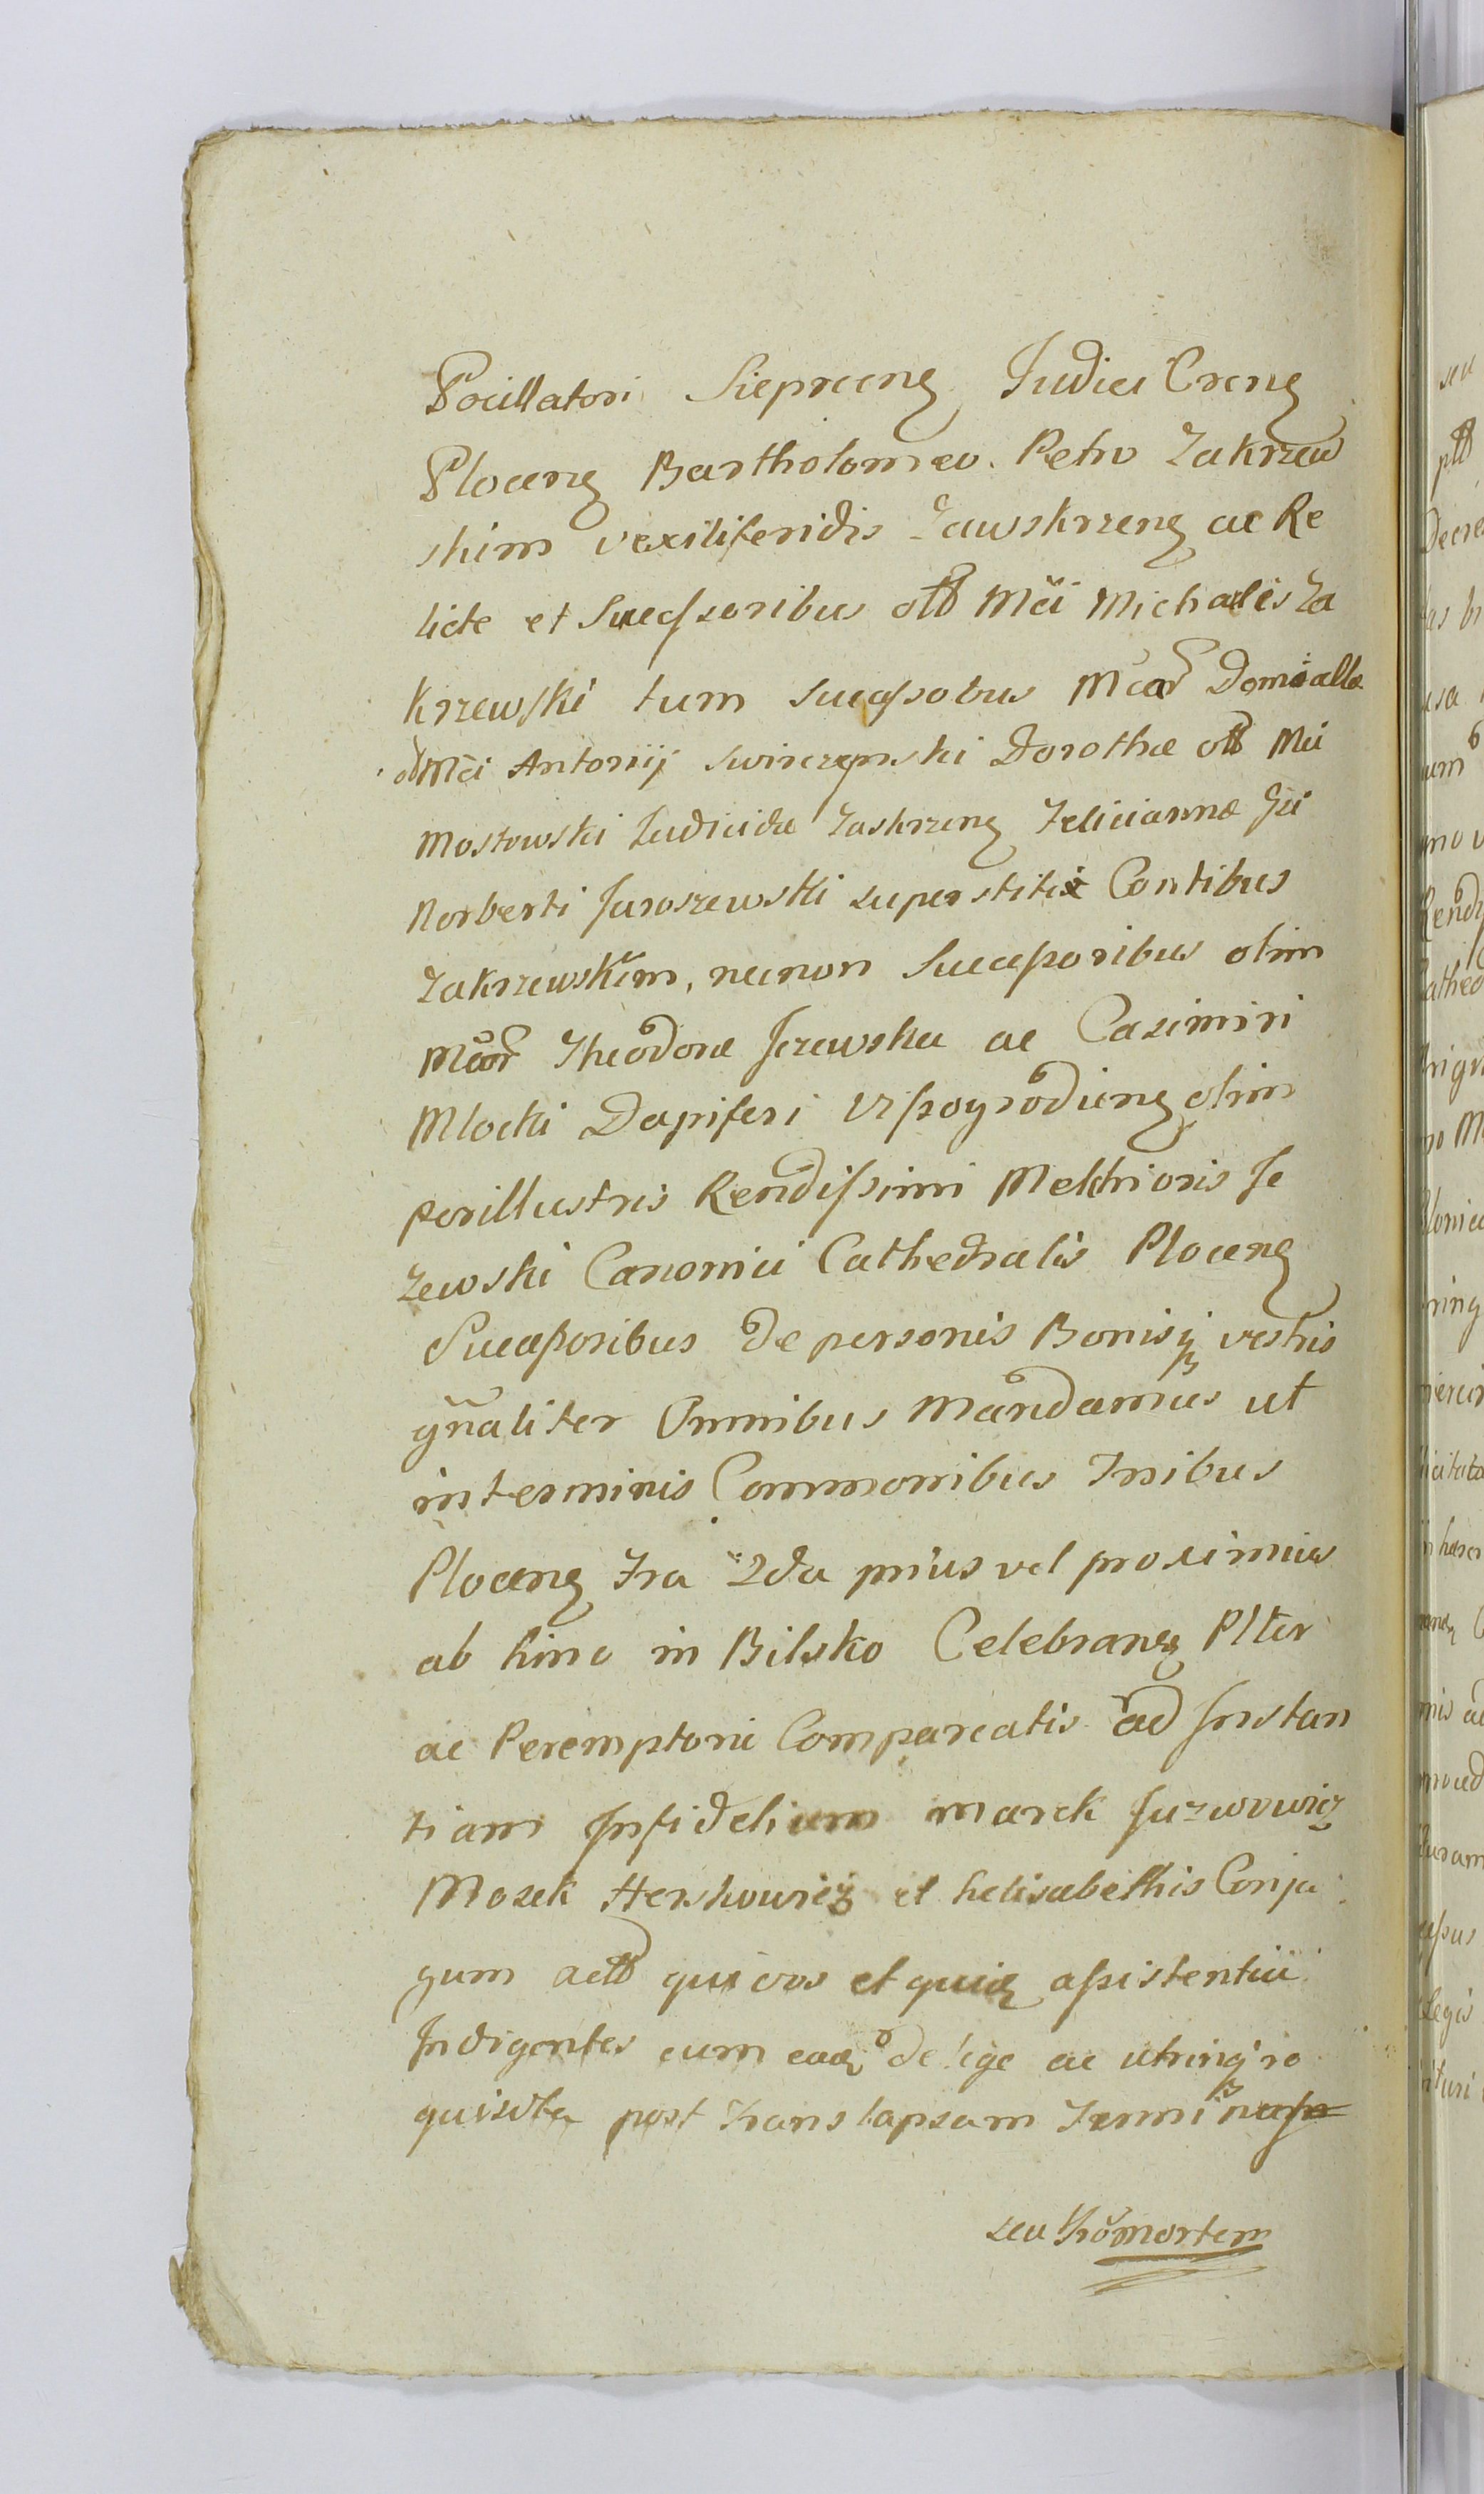 Pocillatori Siepreceng Judici Creng
Ploceng Bartholomeo. Petro Zakrzew
skim vexiliferidis Zawskrzeng ac Re
licte et Succssoribus olt Mci Michaelis Za
krzewski tum Sucessobus Mcar Domicella
Mci Antonij Swirczepski Dorothæ olt Mci
Mostowski Judicida Zaskrzeng Feliciannæ Gi
Norberti Jaroszewski superstitis Contibus
Zakrzewskim, necnon Successoribus olim
Mcar Theodoræ Jezewska ac Casimiri
Mlocki Dapiferi Wyssogrodieng olim
perillustris Rendissimi Melchioris Je
zewski Canonici Cathedralis Ploceng
Successoribus de personis Bonisq vestris
gnaliter Omnibus Mandamus ut
interminis Commonibus Tribus
Ploceng Fra 2da prius vel proximius
ab hinc in Bilsko Celebrang Plter
ac Peremptorie Compareatis ad Instan
tiam Infidelium Marek Juzwowicz
Mosek Herskowicz et helisabethis Conju
gum actt qui vos et quiq assistentiii
Indigentes cum eaq de lege ac utrinq re
quisita post translapsam Termi
seu Fromortem